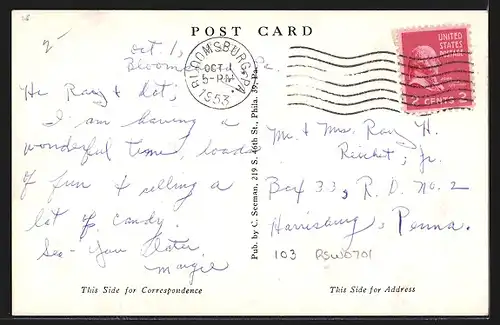 2-
POST CARD
Oct. 1,
Bloomsburg, Pa.
BLOOMSBURG, PA.
OCT 1
5-PM
1953
UNITED
STATES
POSTAGE
2 CENTS 2
Hi Ray & Dot;
I am having a
wonderful time, loads
of fun & selling a
lot of candy.
See-You Later
Margie
Pub. by C. Seeman, 219 S. 46th St. Phila. 39, Pa.
Mr. & Mrs. Ray H.
Reichet, Jr.
Box 333, R. D. No. 2
Harrisburg, Penna.
103 PSW0701
This Side for Correspondence
This Side for Address